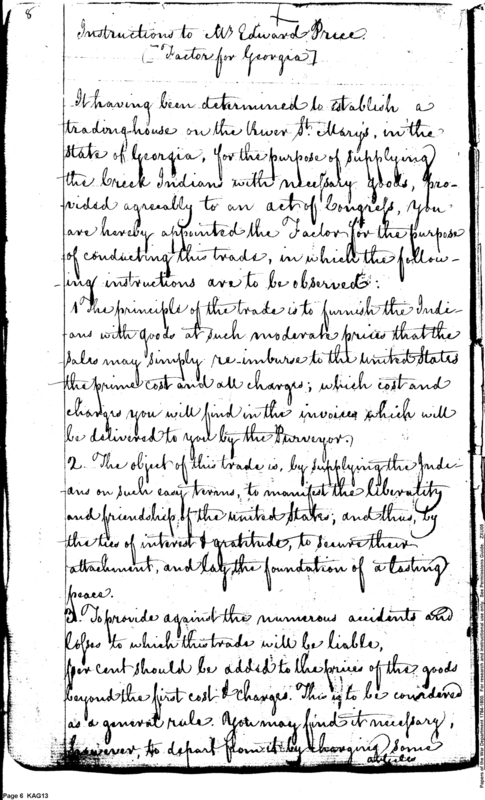 8
Instructions to Mr Edward Price.
[Factor for Georgia]
It having been determined to establish a
trading-house on the River St. Mary's, in the
State of Georgia, for the purpose of supplying
the Creek Indians with necessary goods, pro-
vided agreeably to an act of Congress, You
are hereby appointed the Factor for the purpose
of conducting this trade, in which the follow-
ing instructions are to be observed:
1 The principle of the trade is to furnish the Indi-
ans with goods at such moderate prices that the
sales may simply re-imburse to the United States
the prime cost and all charges; which cost and
charges you will find in the invoices which will
be delivered to you by the Purveyor.
2. The object of this trade is, by supplying the Indi-
ans on such easy terms, to manifest the liberality
and friendship of the United States; and thus, by
the ties of interest & gratitude, to secure their
attachment, and lay the foundation of a lasting
peace.
3. To provide against the numerous accidents and
losses to which this trade will be liable,
per cent should be added to the prices of the goods
beyond the first cost & charges. This is to be considered
as a general rule. You may find it necessary,
however, to depart from it by charging some
articles
Page 6 KAG13